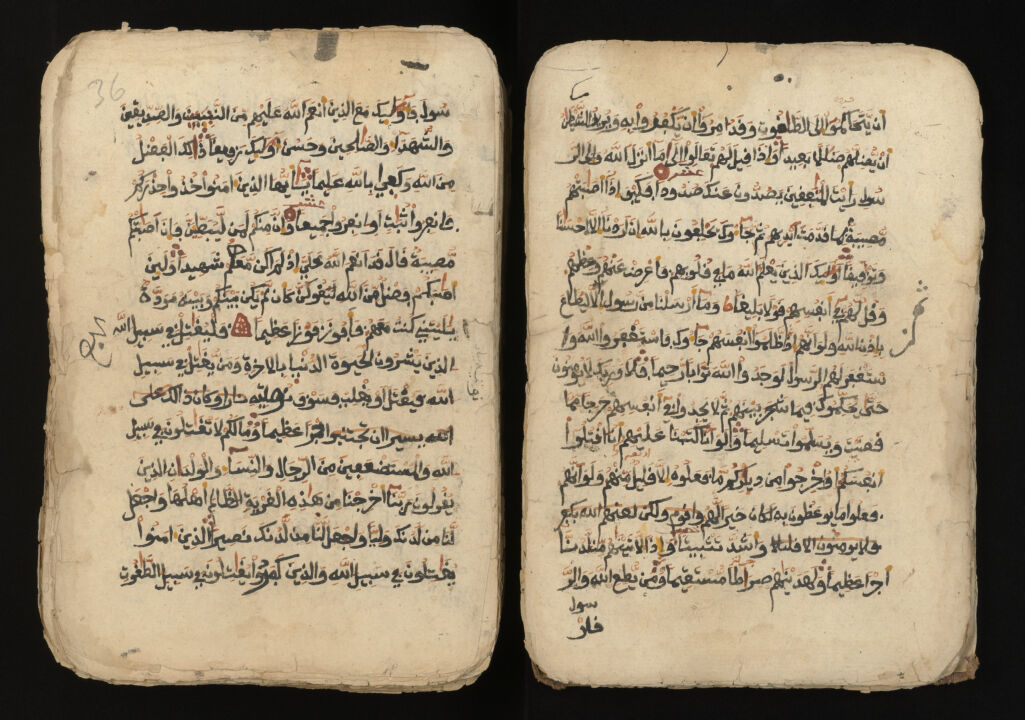 ان يتحاكموا الى الطغوت وقد امروا ان يكفروا به ويريد الشيطن
ان يضلهم ضللا بعيدا واذا قيل لهم تعالوا الى ما انزل الله والى الر
عشر
سول رايت المنفقين يصدون عنك صدودا فكيف اذا اصبتهم
مصيبة بما قدمت ايديهم ثم جاءوك يحلفون بالله ان اردنا الا احسنا
وتوفيقا اوليك الذين يعلم الله ما في قلوبهم فاعرض عنهم وعظهم
وقل لهم في انفسهم قولا بليغا وما ارسلنا من رسول الا ليطاع
باذن الله ولو انهم اذ ظلموا انفسهم جاءوك فاستغفروا الله وا
ستغفر لهم الرسول لوجدوا الله توابا رحيما فلا وربك لا يومنون
حتى يحكموك فيما شجر بينهم ثم لا يجدوا في انفسهم حرجا مما
قضيت ويسلموا تسليما ولو انا كتبنا عليهم ان اقتلوا
انفسكم او اخرجوا من دياركم ما فعلوه الا قليل منهم ولو انهم
فعلوا ما يوعظون به لكان خيرا لهم واقوم ولكن لعنهم الله بكفر
فلا يومنون الا قليلا واشد تثبيتا واذا لاتينهم من لدنا
اجرا عظيما ولهدينهم صراطا مستقيما ومن يطع الله والر
سول
فار
36
سول فاوليك مع الذين انعم الله عليهم من النبيين والصديقين
والشهداء والصالحين وحسن اوليك رفيقا ذالك الفضل
من الله وكفى بالله عليما يايها الذين امنوا خذوا حذركم
عشر
فانفروا ثبات او انفروا جميعا وان منكم لمن ليبطين فان اصبتكم
مصيبة قال قد انعم الله علي اذ لم اكن معهم شهيدا ولين
اصبكم فضل من الله ليقولن كان لم يكن بينكم وبينه مودة
يليتني كنت معهم فافوز فوزا عظيما فليقتل في سبيل الله
الذين يشرون الحيوة الدنيا بالاخرة ومن يقتل في سبيل
الله فيقتل او يغلب فسوف نصليه نارا وكان ذالك على
الله يسيرا ان تجتنبوا اجرا عظيما وما لكم لا تقتلون في سبيل
الله والمستضعفين من الرجال والنساء والولدان الذين
يقولون ربنا اخرجنا من هذه القرية الظالم اهلها واجعل
لنا من لدنك وليا واجعل لنا من لدنك نصيرا الذين امنوا
يقتلون في سبيل الله والذين كفروا يقتلون في سبيل الطغوت